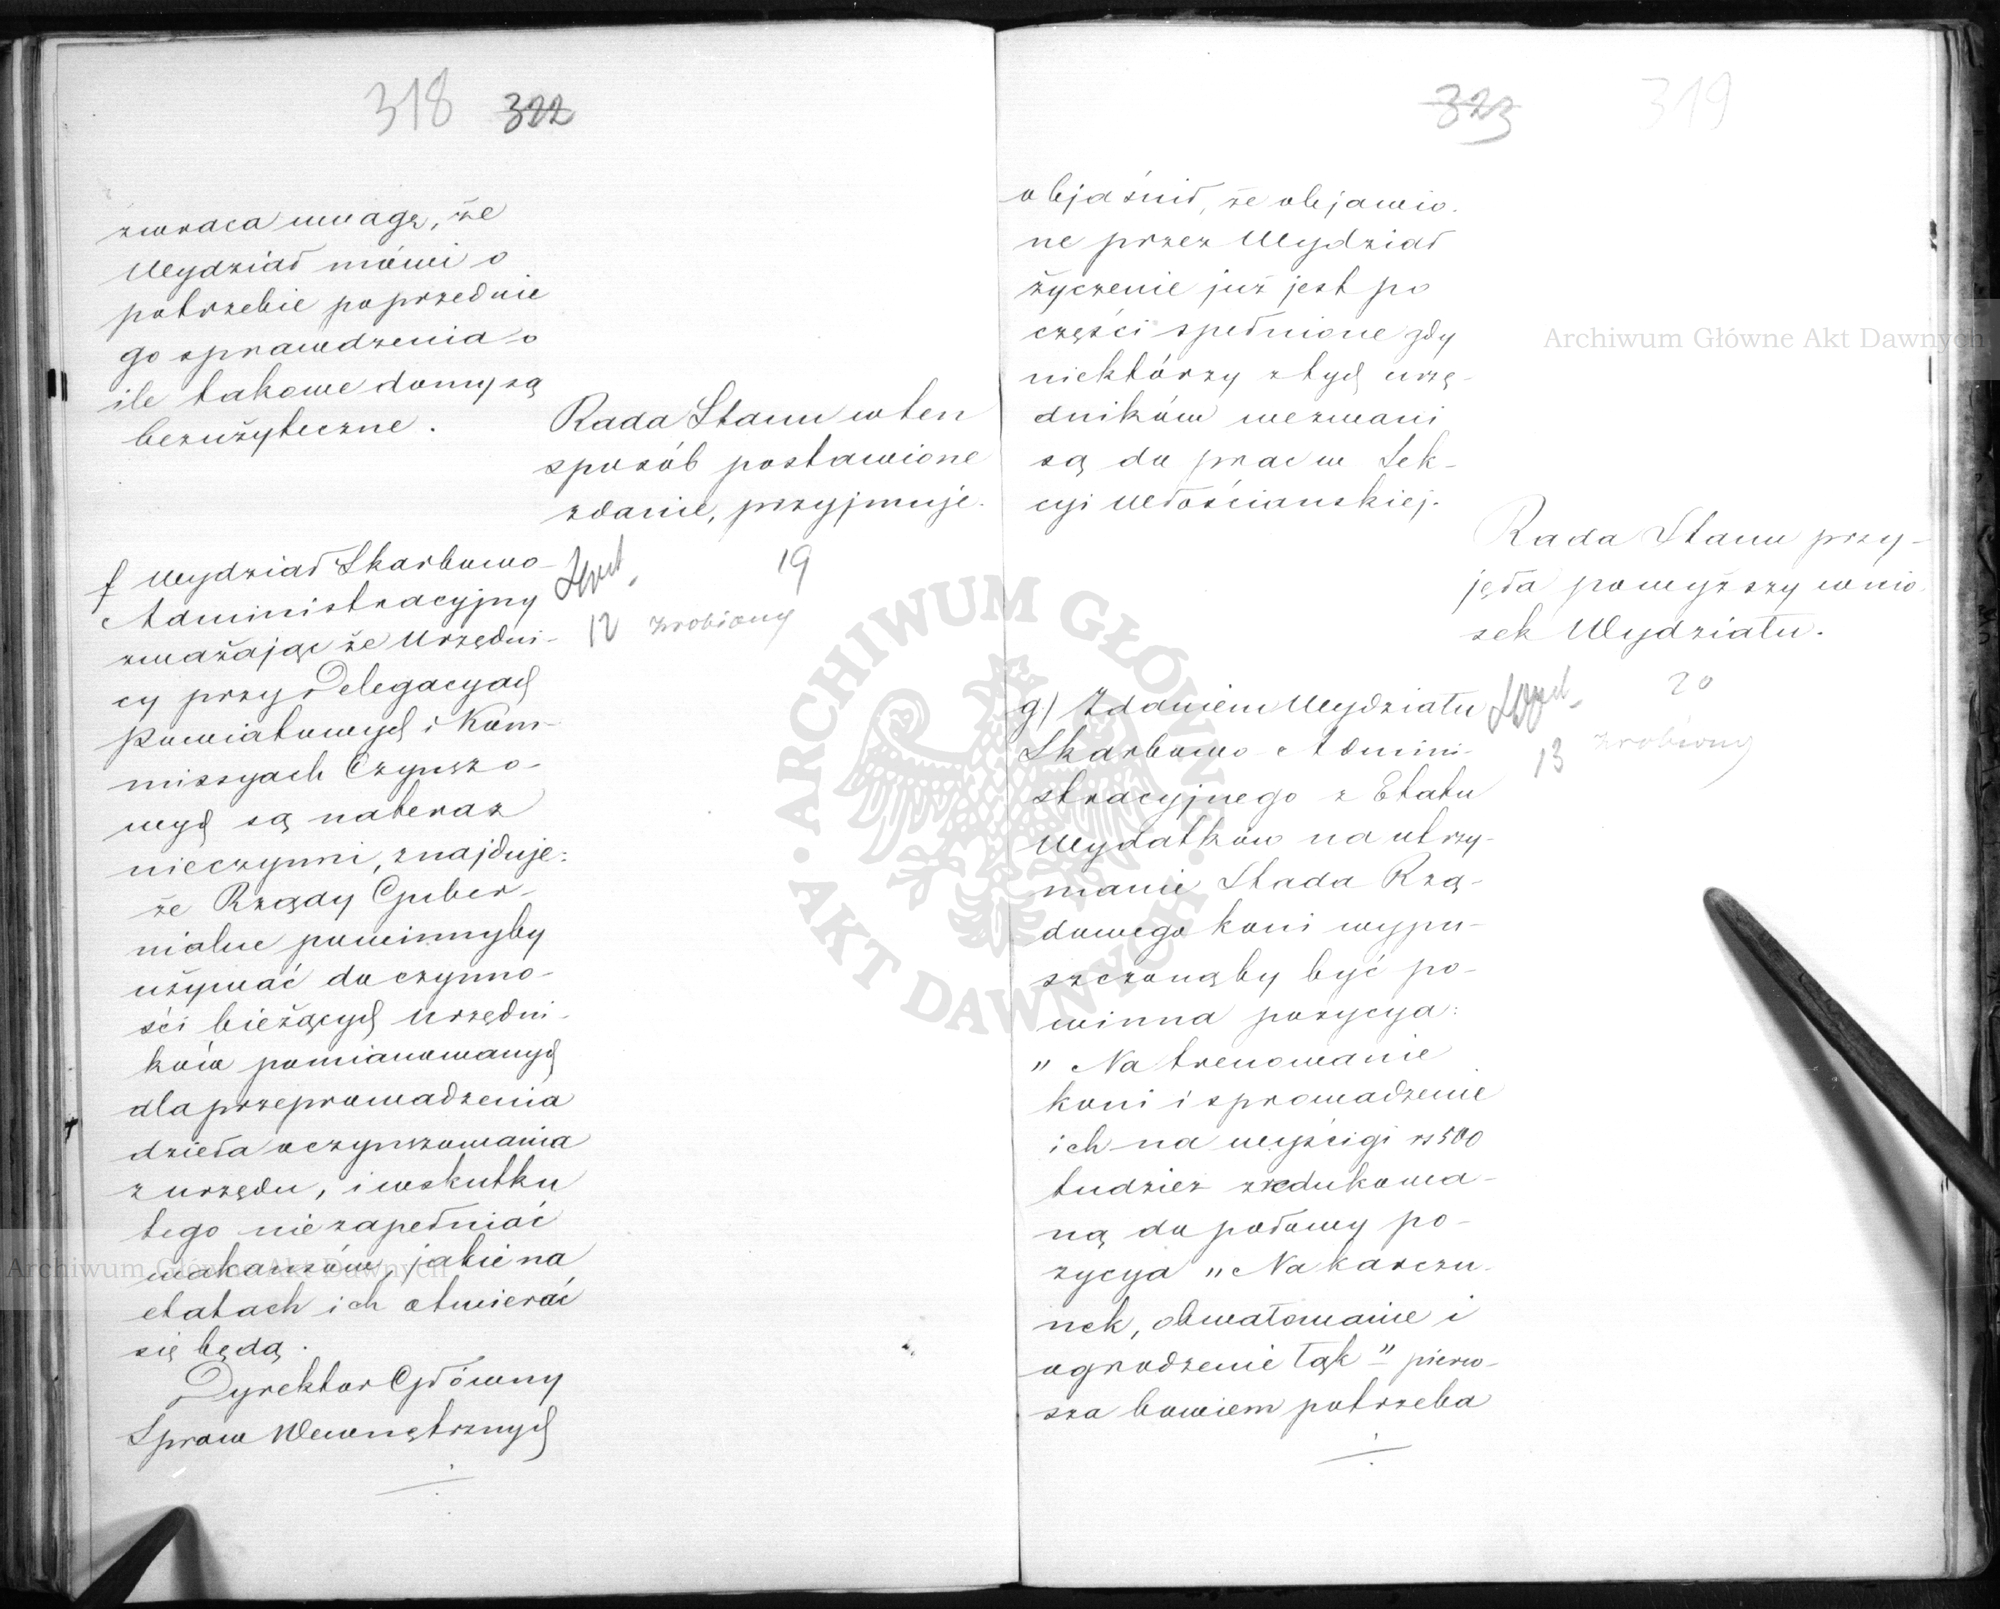 318 322
zwraca uwagę, że
Wydział mówi o
potrzebie poprzednie
go sprawdzenia o
ile takowe domy są
bezużyteczne.
Rada Stanu w ten
sposób postawione
zdanie, przyjmuje.
f Wydział Skarbowo
Administracyjny
zważając że Urzędni-
cy przy Delegacyach
Powiatowych i Kom-
missyach Czynszo-
wych są na teraz
nieczynni, znajduje:
że Rządy Guber-
nialne powinnyby
używać do czynno-
ści bieżących Urzędni-
ków pomianowanych
dla przeprowadzenia
dzieła oczynszowania
z urzędu, i wskutku
tego nie zapełniać
wakansów, jakie na
etatach ich otwierać
się będą.
Dyrektor Główny
Spraw Wewnętrznych
19
12 zrobiony
323 319
objaśnił, że objawio-
ne przez Wydział
życzenie już jest po
części spełnione gdy
niektórzy z tych urzę-
dników wezwani
są do prac w Sek-
cyi Włościanskiej.
Rada Stanu przy-
jęła powyższy wnio-
sek Wydziału.
g) Zdaniem Wydziału
Skarbowo Admini-
stracyjnego z Etatu
Wydatków na utrzy-
manie Stada Rzą-
dowego koni wypu-
szczonąby być po-
winna pozycya:
" Na trenowanie
koni i sprowadzenie
ich na wyścigi rs 500
tudzież zredukowa-
ną do połowy po-
zycya " Na karczu-
nek, obwałowanie i
ogrodzenie łąk " pierw-
sza bowiem potrzeba
20
13 zrobiony
Archiwum Główne Akt Dawnych
Archiwum Główne Akt Dawnych
ARCHIWUM GŁÓWNE
AKT DAWNYCH